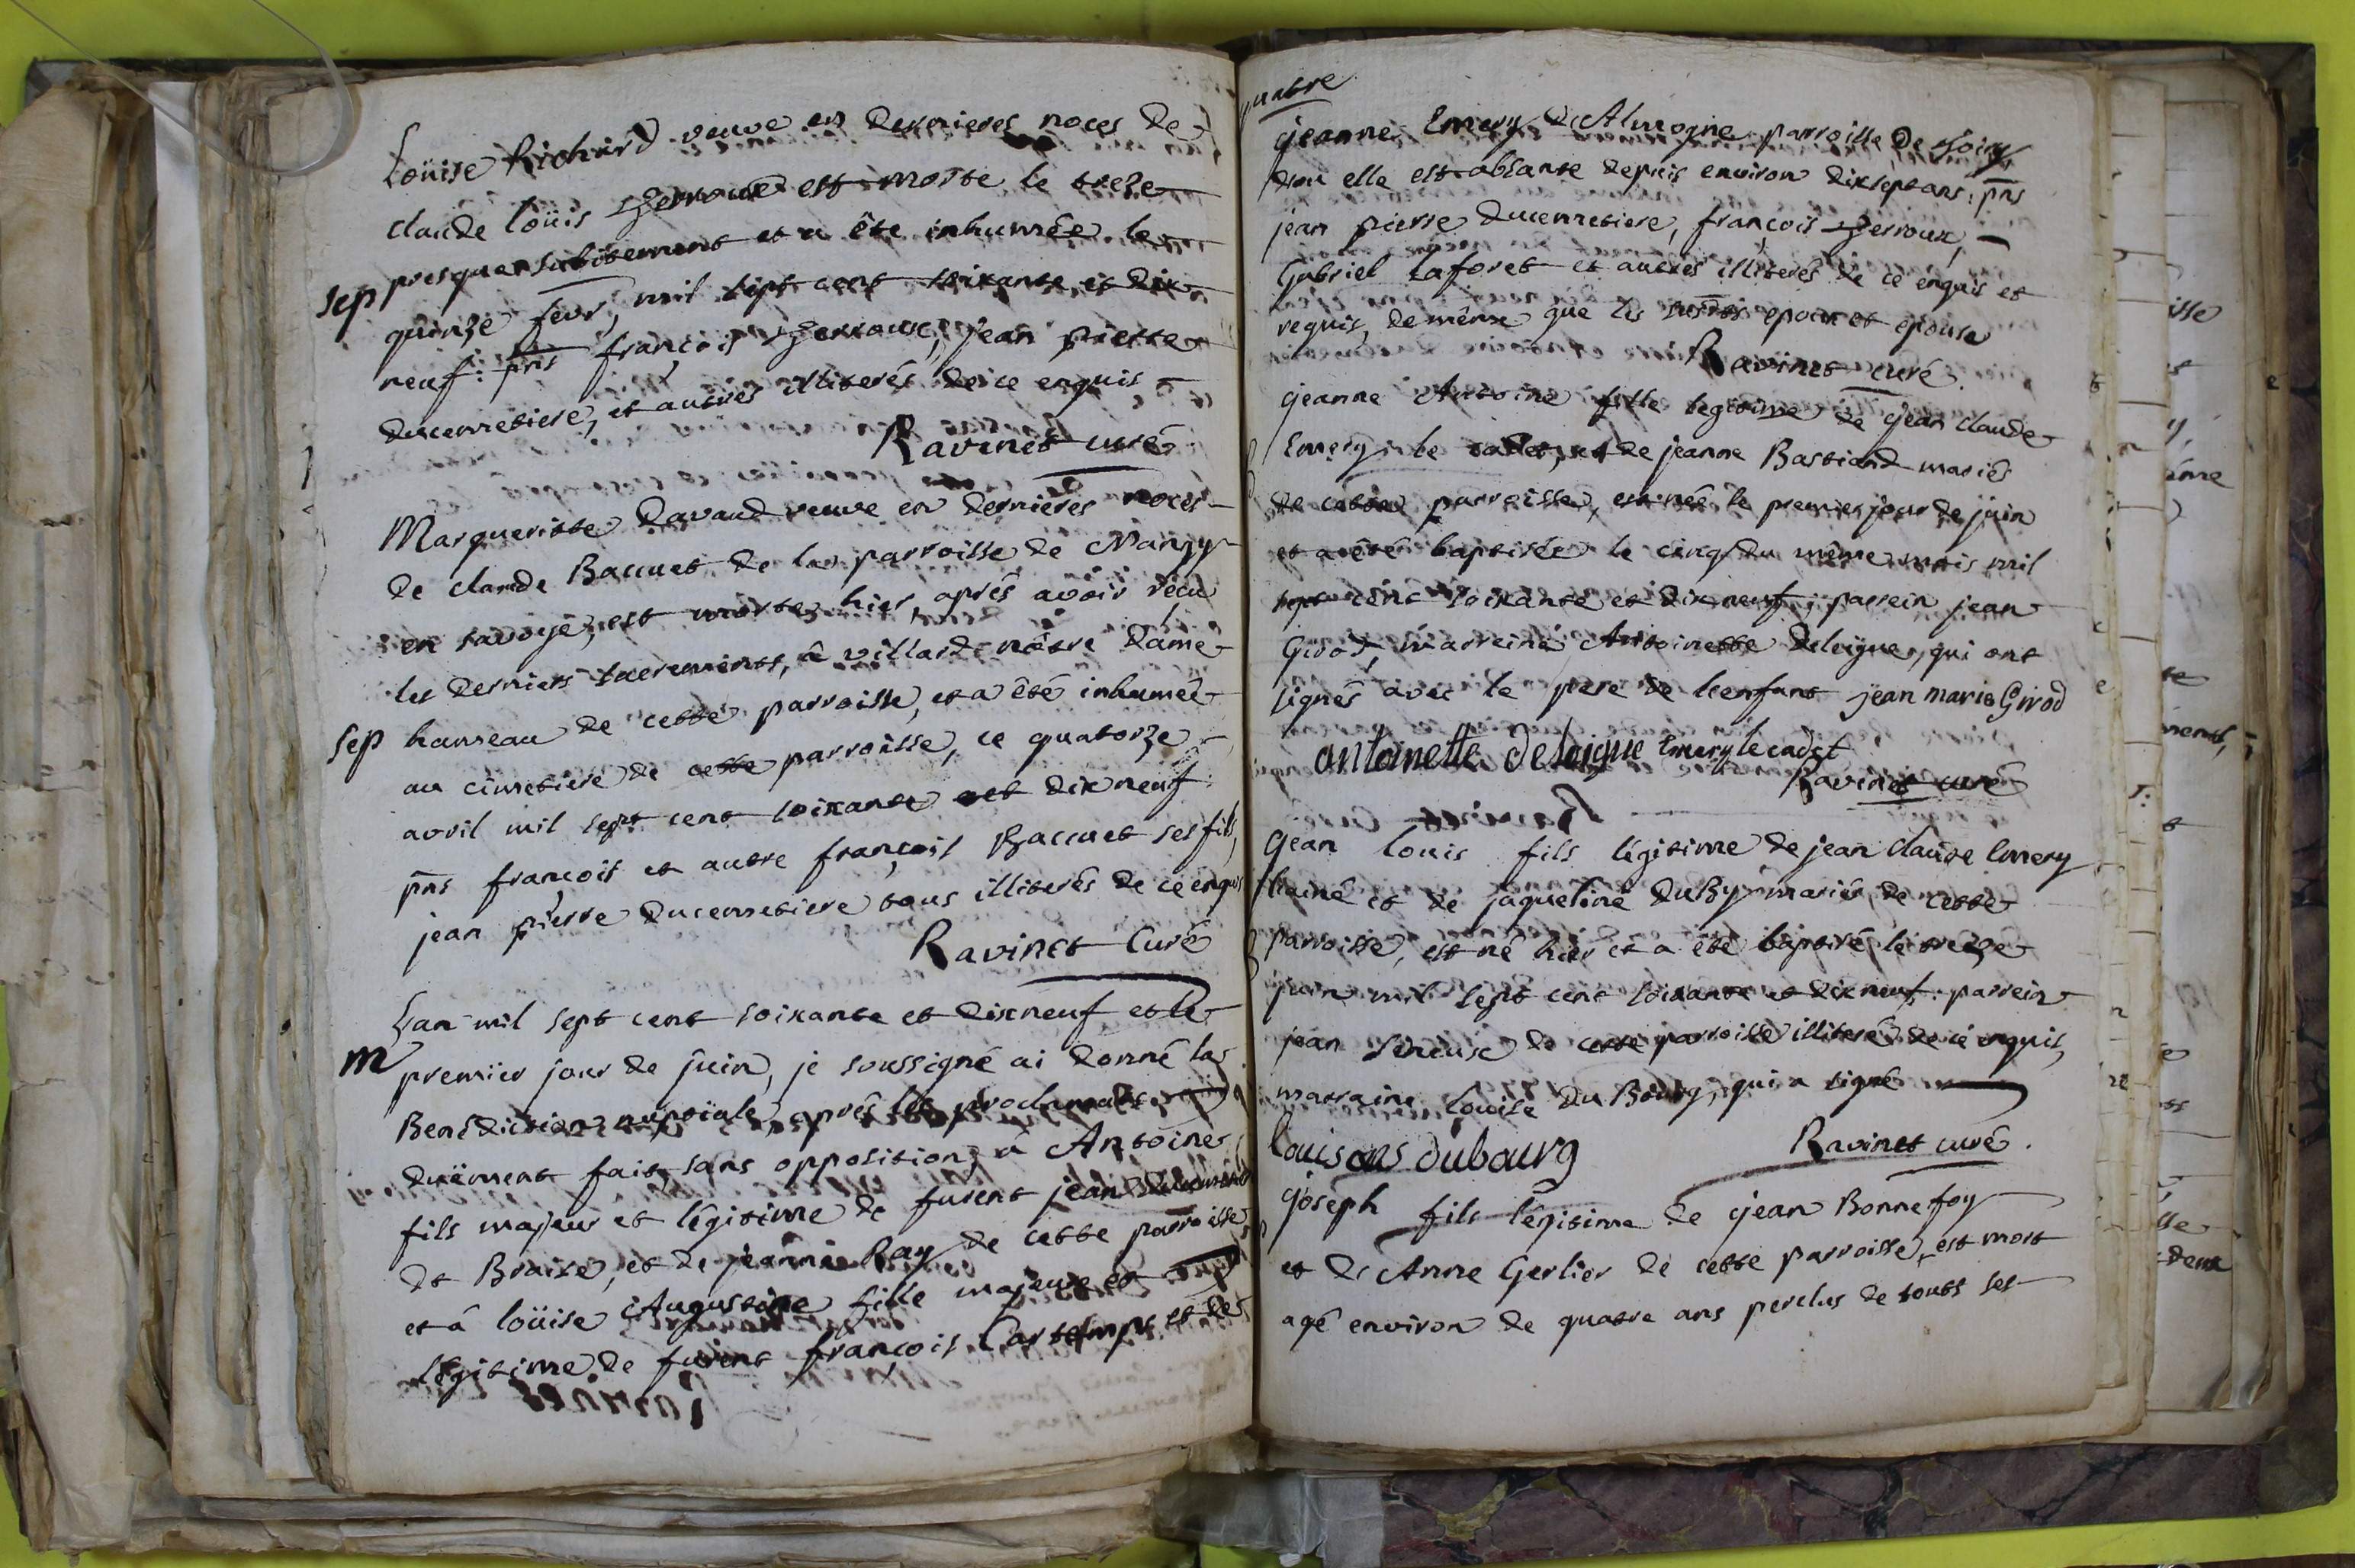 Loüise Richard veuve en dernieres noces de
claude loüis Perroux est morte le treze
presque subitement et a ête inhumée le
sep
quinze fevr, mil sept cent soixante et dix
neuf: pns françois Perroux, jean pierre
ducemetiere, et autres illiterés de ce enquis
Ravinet curé
Margueritte Davaud veuve en dernieres noces
de claude Baccuet de la parroisse de Nangy
en savoye, est morte hier, aprés avoir reçu
les derniers sacrements, â villard nôtre Dame
sep hameau de cette parroisse, et a êté inhumée
au cimetiere de cette parroisse, ce quatorze
avril mil sept cent soixante et dix neuf
pns françois et autre françois Baccuet ses fils,
jean pierre ducemetiere tous illiterés de ce enquis
Ravinet Curé
Lan mil sept cent soixante et dix neuf et le
m premier jour de juin, je soussigné ai donné la
Benédiction nuptiale, aprés les proclamats
duëment fait, sans opposition, â Antoine
fils majeur et légitime de furent jean
de Braise, et de jeanne Ray de cette parroisse,
et â loüise Augustine fille majeure et
légitime de furent françois Cartelmps et de
quatre
jeanne Emery d'Almogne parroisse de Soiry
dou elle est absante depuis environ dixsept ans: pns
jean pierre ducemetiere, françois Perroux,
Gabriel Laforet et autres illiterés de ce enquis et
requis, de même que les susdts epoux et epouse
Ravinet curé
jeanne Antoine fille legitime de jean claude
Emery le cadet, et de jeanne Bastiand mariés
de cette parroisse, est née le premier jour de juin
et a êté baptisée le cinq du même mois mil
sept cent soixante et dix neuf; parrein jean
Girod, marreine Antoinette deleigue, qui ont
signés avec le pere de l'enfant jean marie Girod
antoinette deleigue Emery le cadet
Ravinet curé
jean louis fils légitime de jean claude Emery
l'ainé et de jaqueline duBy mariés de cette
parroisse, est né hier et a êté baptisé le treze
juin mil sept cent soixante et dix neuf: parrein
jean de cette parroisse illiteré de ce enquis,
marraine louise du Bourg, qui a signé
louise dubourg Ravinet curé.
joseph fils légitime de jean Bonnefoy
et de Anne Gerlier de cette parroisse, est mort
agé environ de quatre ans perclus de touts ses